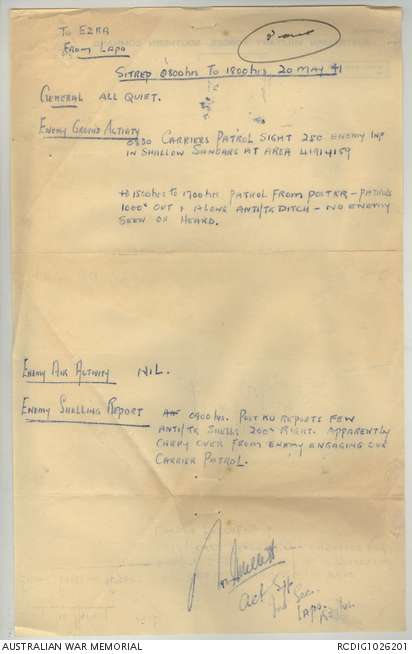 To EZRA
From Lapo
SITREP 0800hrs To 1800hrs 20 MAY 41
General ALL QUIET.
Enemy Ground Activity
0830 CARRIERS PATROL SIGHT 250 ENEMY INF
IN SHALLOW SANGARS AT AREA 41914159
1500hrs To 1700hrs PATROL FROM POST R4 - PATROL
1000x OUT & ALONG ANTI/TK DITCH - NO ENEMY
SEEN OR HEARD.
Enemy Air Activity NIL.
Enemy Shelling Report 0900hrs. POST RU REPORTS FEW
ANTI/TK SHELLS 200x RIGHT. APPARENTLY
CARRY OVER FROM ENEMY ENGAGING OUR
CARRIER PATROL.
Act Sjt
Int Sec.
AUSTRALIAN WAR MEMORIAL
RCDIG1026201